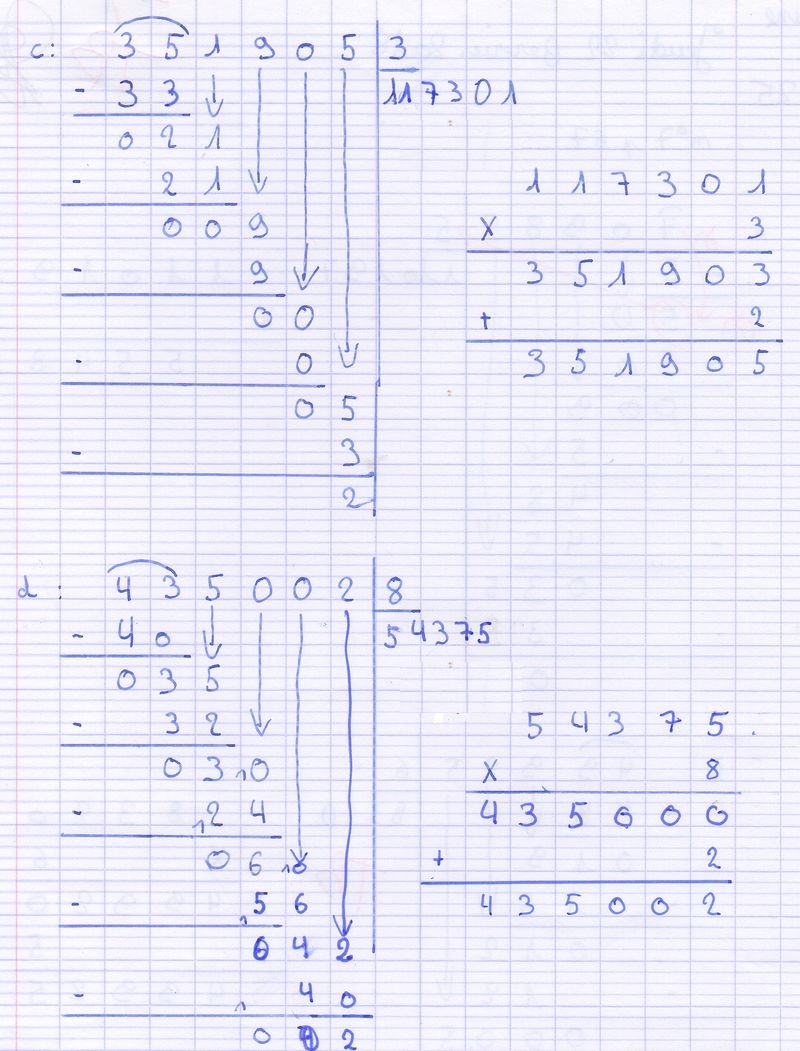 c: 3 5 1 9 0 5 3
- 3 3 117301
0 2 1
- 2 1
0 0 9
- 9
0 0
- 0
0 5
- 3
2
1 1 7 3 0 1
x 3
3 5 1 9 0 3
+ 2
3 5 1 9 0 5
d: 4 3 5 0 0 2 8
- 4 0 54375
0 3 5
- 3 2
0 3 10
- 12 4
0 6 10
- 15 6
0 4 2
- 4 0
0 0 2
5 4 3 7 5 .
x 8
4 3 5 0 0 0
+ 2
4 3 5 0 0 2